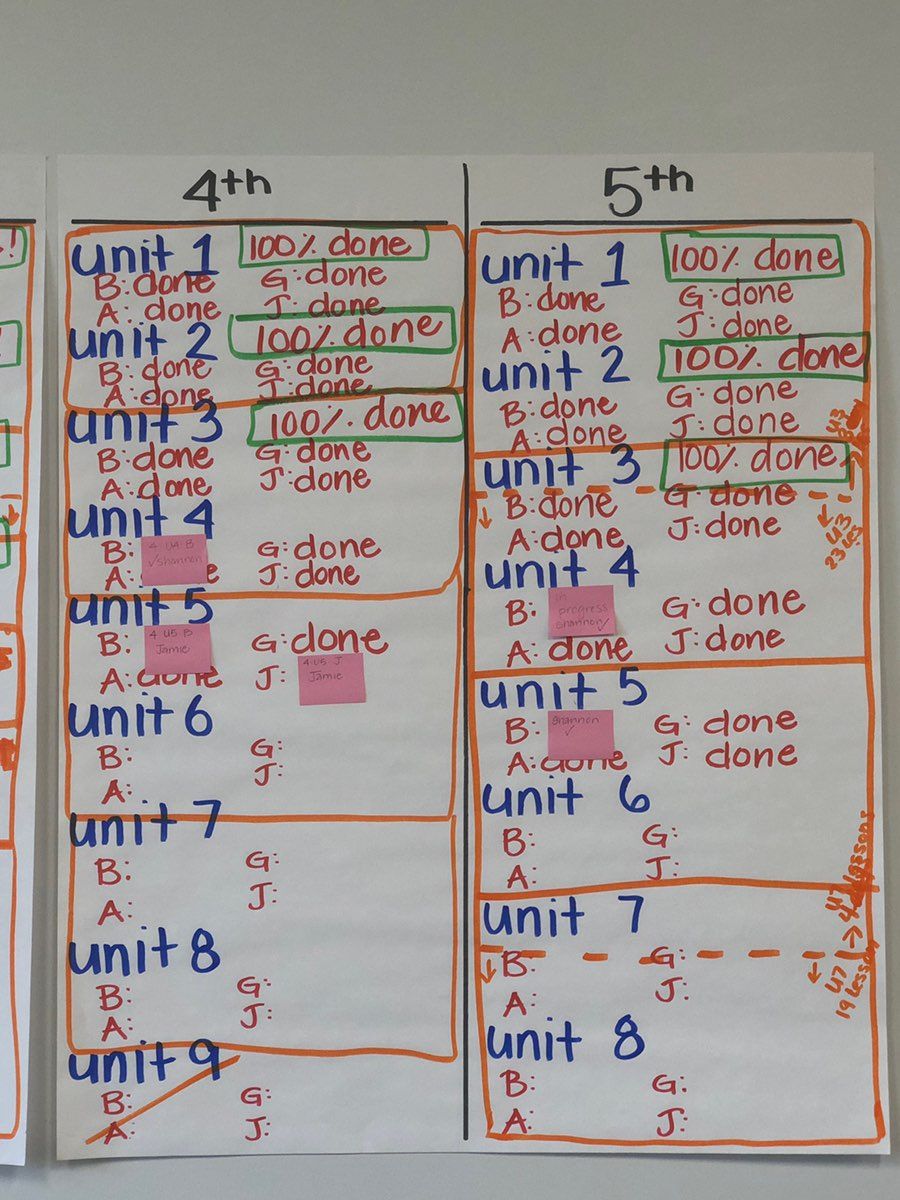 4th
unit 1 100% done
B: done G: done
A: done J: done
unit 2 100% done
B: done G: done
A: done J: done
unit 3 100% done
B: done G: done
A: done J: done
unit 4
B: 4 U4 B G: done
✓Shannon
A: J: done
unit 5
B: 4 U5 B G: done
Jamie
A: done J: 4 U5 J
Jamie
unit 6
B: G:
A: J:
unit 7
B: G:
A: J:
unit 8
B: G:
A: J:
unit 9
B: G:
A: J:
5th
unit 1 100% done
B: done G: done
A: done J: done
unit 2 100% done
B: done G: done
A: done J: done
U3
unit 3 100% done
B: done G: done
A: done J: done
U3
23 les
unit 4
B: in G: done
progress
Shannon✓
A: done J: done
unit 5
B: Shannon G: done
✓
A: done J: done
unit 6
B: G:
A: J:
U7 lessons
unit 7
B: G:
A: J:
U7
19 lesson
unit 8
B: G:
A: J: